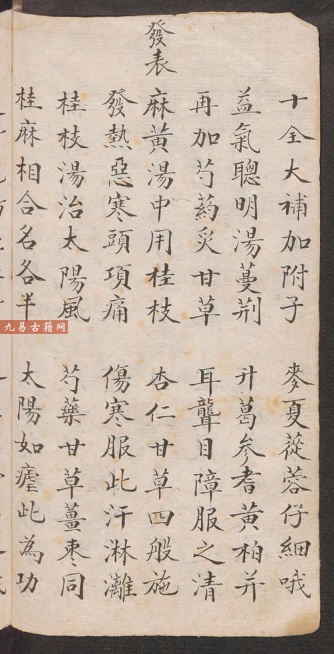 十全大補加附子　麥夏蓯蓉仔細哦
益氣聰明湯蔓荆　升葛參耆黃柏并
再加芍葯炙甘草　耳聾目障服之清
發表
麻黃湯中用桂枝　杏仁甘草四般施
發熱惡寒頭項痛　傷寒服此汗淋漓
桂枝湯治太陽風　芍藥甘草薑枣同
桂麻相合名各半　太陽如瘧此為功
九易古籍网